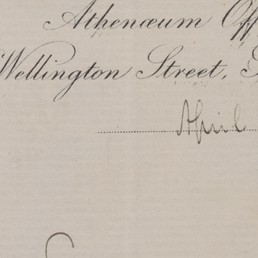 Athenæum Off
Wellington Street, S
April